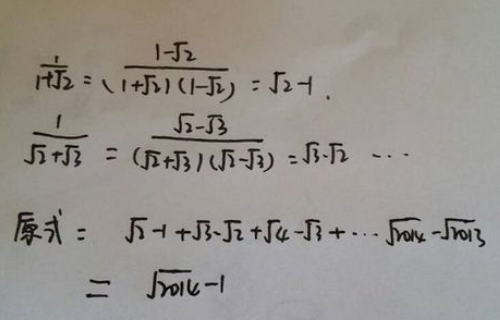 1/(1+√2) = (1-√2)/((1+√2)(1-√2)) = √2-1.
1/(√2+√3) = (√2-√3)/((√2+√3)(√2-√3)) = √3-√2 ...
原式 = √2-1+√3-√2+√4-√3+...√2014-√2013
= √2014-1